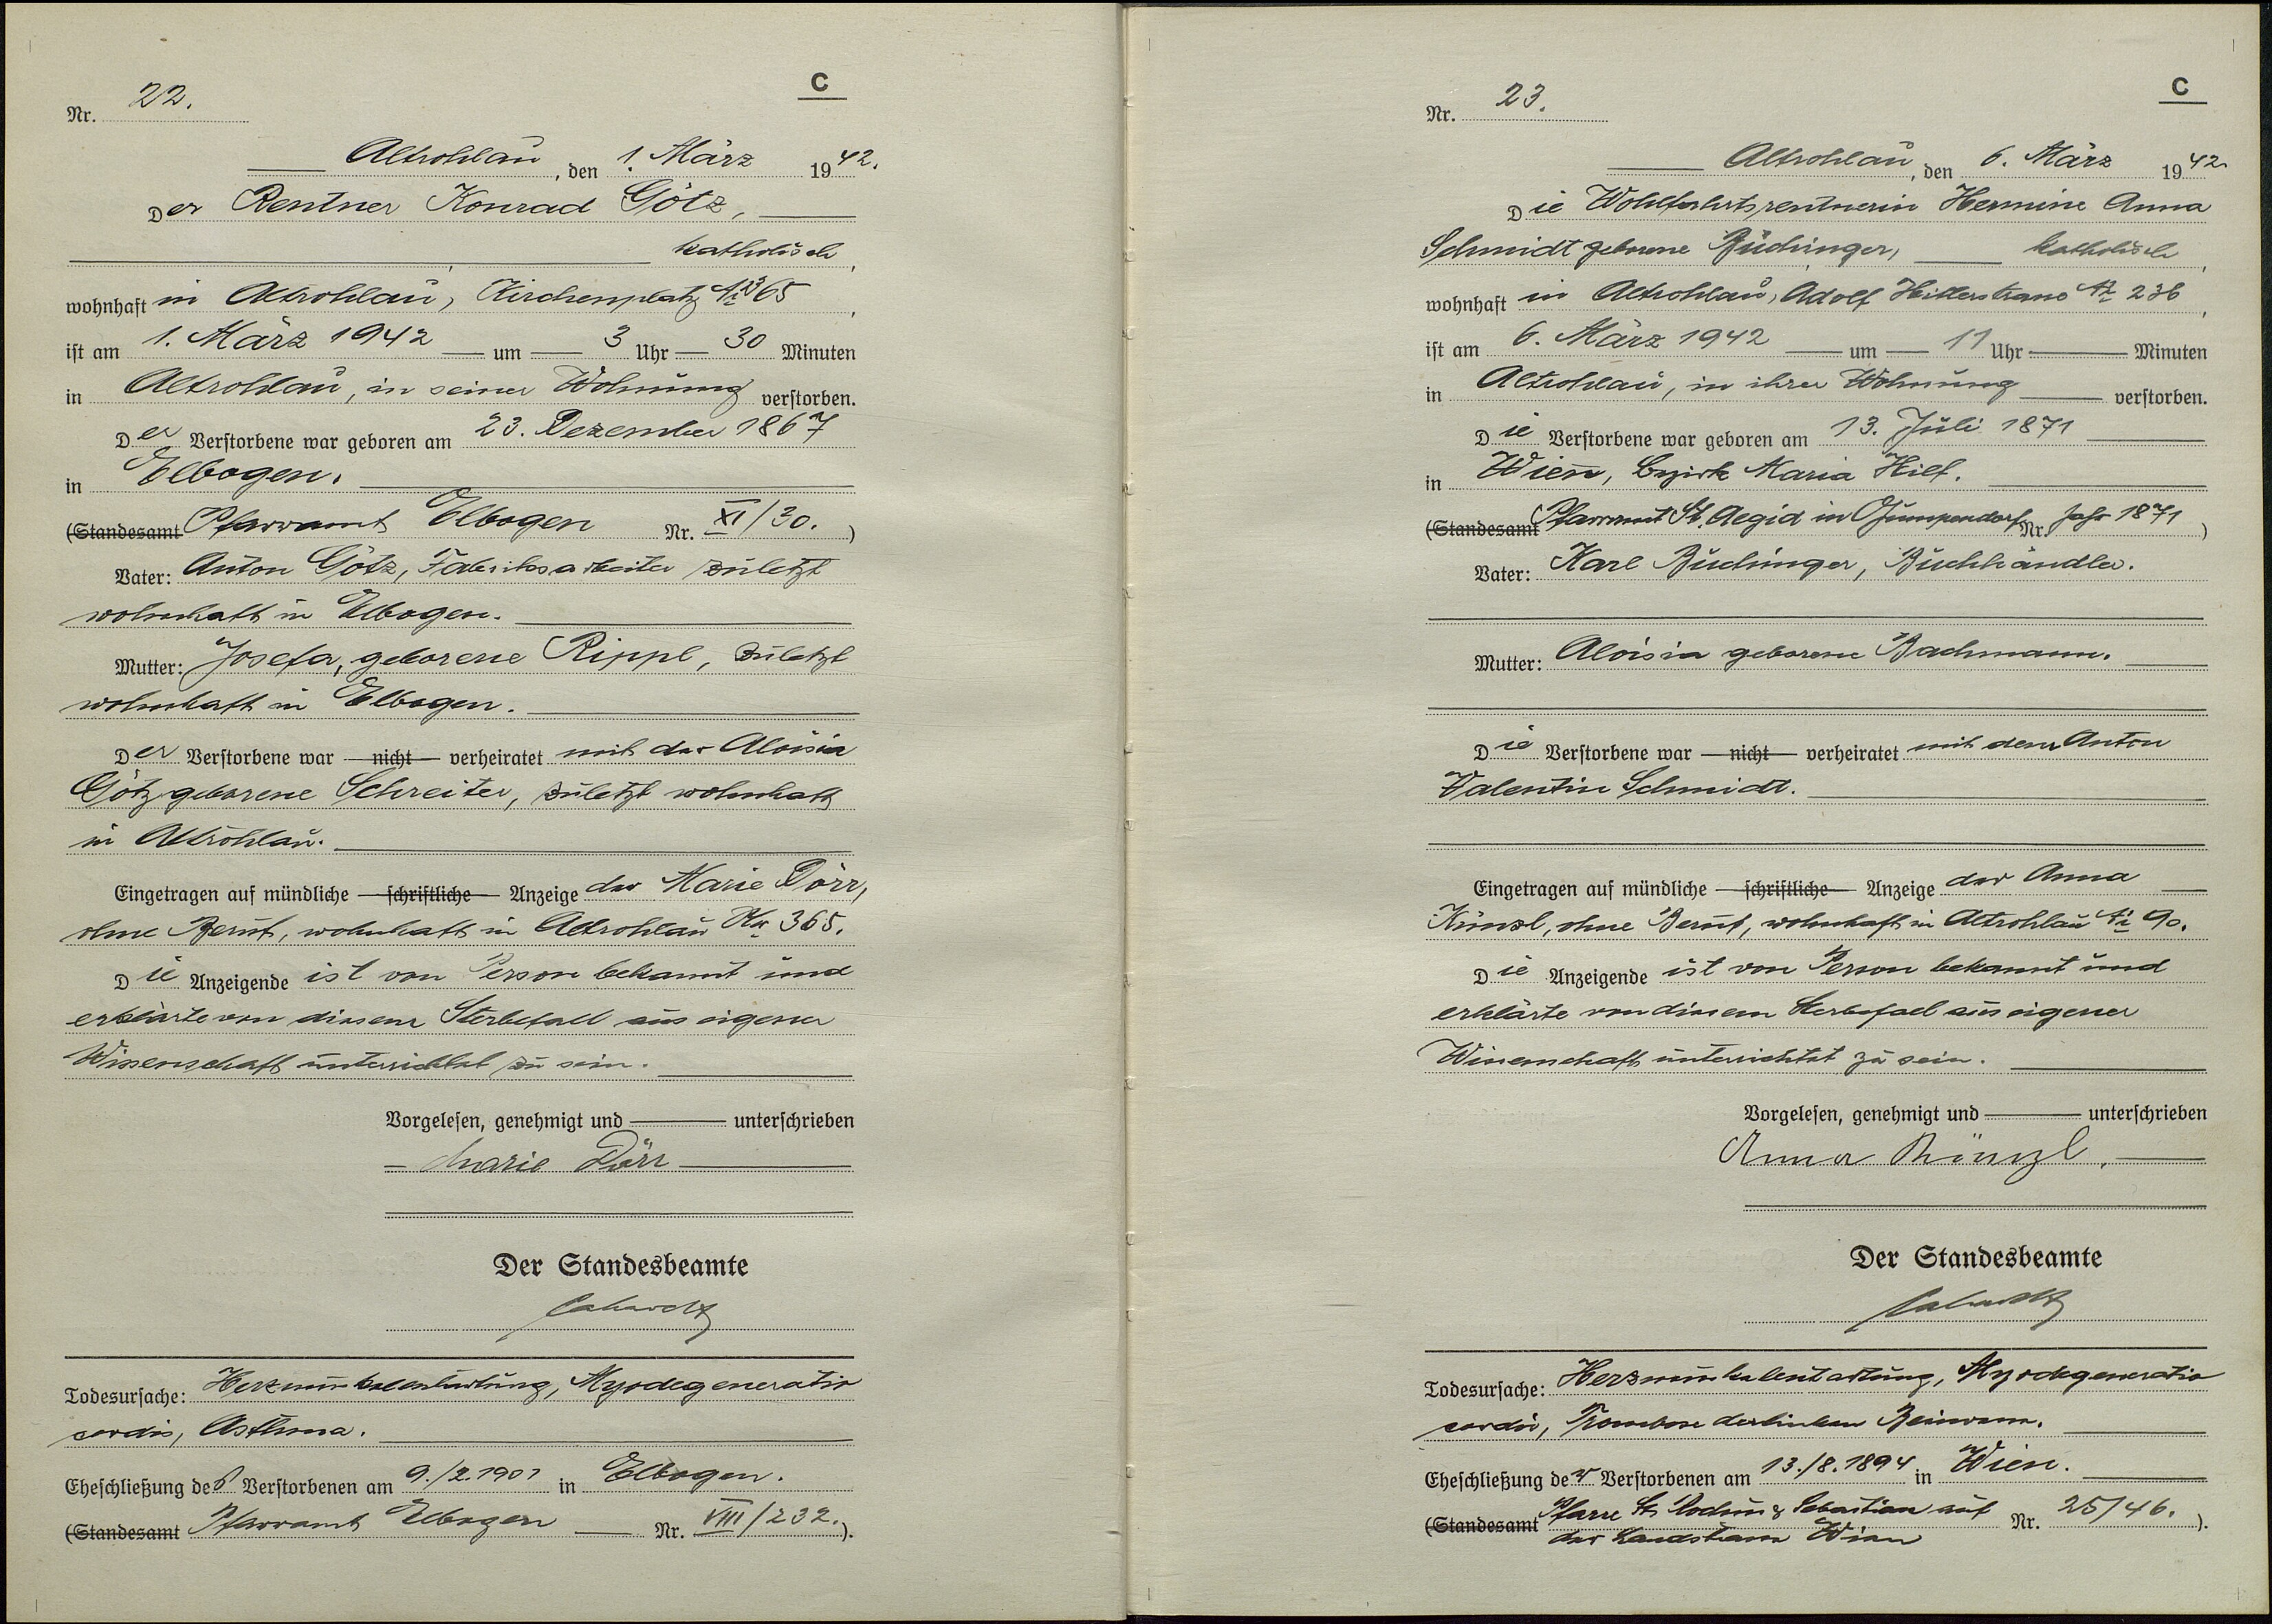 C
Nr. 22.
Altrohlau, den 1. März 1942.
Der Rentner Konrad Götz,
katholisch,
wohnhaft in Altrohlau, Kirchenplatz Nr 365,
ist am 1. März 1942 um 3 Uhr 30 Minuten
in Altrohlau, in seiner Wohnung verstorben.
Der Verstorbene war geboren am 23. Dezember 1867
in Elbogen.
(Standesamt Pfarramt Elbogen Nr. XI/30.)
Vater: Anton Götz, Fabriksarbeiter zuletzt
wohnhaft in Elbogen.
Mutter: Josefa, geborene Rippl, zuletzt
wohnhaft in Elbogen.
Der Verstorbene war nicht verheiratet mit der Aloisia
Götz geborene Schreiter, zuletzt wohnhaft
in Altrohlau.
Eingetragen auf mündliche schriftliche Anzeige der Marie Dörr,
ohne Beruf, wohnhaft in Altrohlau Nr 365.
Die Anzeigende ist von Person bekannt und
erklärte von diesem Sterbefall aus eigener
Wissenschaft unterrichtet zu sein.
Vorgelesen, genehmigt und unterschrieben
Marie Dörr
Der Standesbeamte
Todesursache: Herzmuskelentartung, Myodegeneratio
cordis, Asthma.
Eheschließung des Verstorbenen am 9./2.1901 in Elbogen.
(Standesamt Pfarramt Elbogen Nr. VIII/232.).
C
Nr. 23.
Altrohlau, den 6. März 1942.
Die Wohlfahrtsrentnerin Hermine Anna
Schmidt geborene Büchinger, katholisch,
wohnhaft in Altrohlau, Adolf Hitlerstrasse Nr 236,
ist am 6. März 1942 um 11 Uhr Minuten
in Altrohlau, in ihrer Wohnung verstorben.
Die Verstorbene war geboren am 13. Juli 1871
in Wien, Bezirk Maria Hilf.
(Standesamt Pfarramt St. Aegid in Gumpendorf Nr. Jahr 1871)
Vater: Karl Büchinger, Buchhändler.
Mutter: Aloisia geborene Bachmann.
Die Verstorbene war nicht verheiratet mit dem Anton
Valentin Schmidt.
Eingetragen auf mündliche schriftliche Anzeige der Anna
Künzl, ohne Beruf, wohnhaft in Altrohlau Nr 90.
Die Anzeigende ist von Person bekannt und
erklärte von diesem Sterbefall aus eigener
Wissenschaft unterrichtet zu sein.
Vorgelesen, genehmigt und unterschrieben
Anna Künzl.
Der Standesbeamte
Todesursache: Herzmuskelentartung, Myodegeneratio
cordis, Trombose der linken Beinvene.
Eheschließung der Verstorbenen am 13./8.1894 in Wien.
(Standesamt Pfarre St. Rochus & Sebastian auf Nr. 25/46.).
der Landstrasse Wien